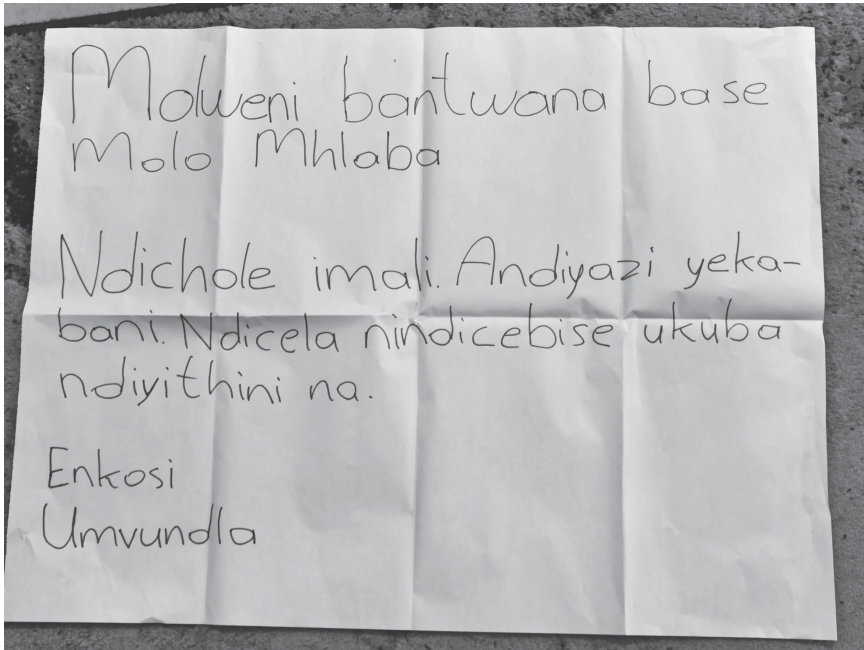 Molweni bantwana base
Molo Mhlaba
Ndichole imali. Andiyazi yeka-
bani. Ndicela nindicebise ukuba
ndiyithini na.
Enkosi
Umvundla